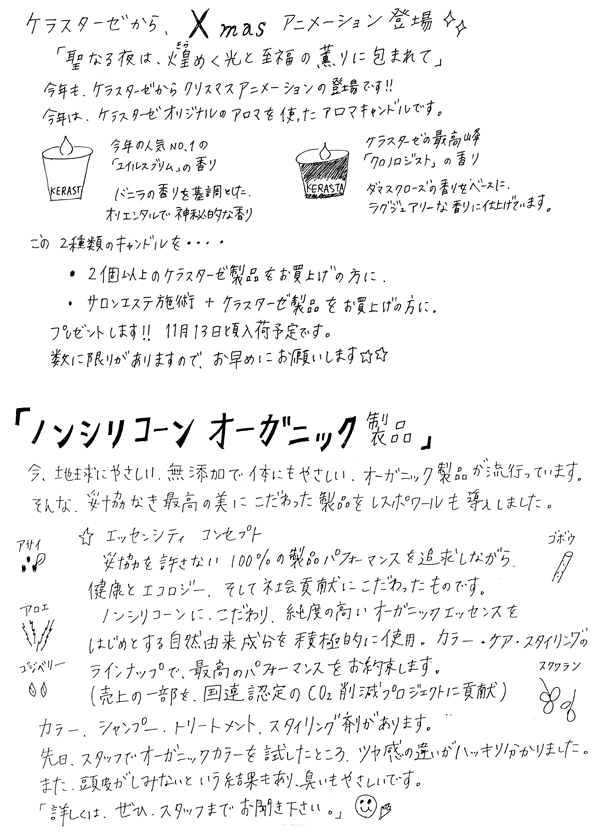 ケラスターゼから、Xmas アニメーション 登場☆☆
「聖なる夜は、煌めく光と至福の薫りに包まれて」
きら
今年も、ケラスターゼから クリスマスアニメーションの登場です!!
今年は、ケラスターゼオリジナルのアロマを使ったアロマキャンドルです。
KERAST
今年の人気NO.1の
「ユイルスブリム」の香り
バニラの香りを基調とした、
オリエンタルで神秘的な香り
KERASTA
ケラスターゼの最高峰
「クロノロジスト」の香り
ダマスクローズの香りをベースに、
ラグジュアリーな香りに仕上げています。
この 2種類のキャンドルを・・・・
・ 2個以上のケラスターゼ製品をお買上げの方に、
・ サロンエステ施術 + ケラスターゼ製品をお買上げの方に、
プレゼントします!! 11月13日頃入荷予定です。
数に限りがありますので、お早めにお願いします☆☆
「ノンシリコーン オーガニック 製品」
今、地球にやさしい、無添加で体にもやさしい、オーガニック製品が流行っています。
そんな、妥協なき最高の美にこだわった製品をレスポワールも導入しました。
☆ エッセンシティ コンセプト
妥協を許さない 100%の製品パフォーマンスを追求しながら、
健康とエコロジー、そして社会貢献にこだわったものです。
ノンシリコーンに、こだわり、純度の高いオーガニックエッセンスを
はじめとする自然由来成分を積極的に使用。カラー・ケア・スタイリングの
ラインナップで、最高のパフォーマンスをお約束します。
(売上の一部を、国連認定のCO2削減プロジェクトに貢献)
アサイ
アロエ
ゴジベリー
ゴボウ
スクワラン
カラー、シャンプー、トリートメント、スタイリング剤があります。
先日、スタッフでオーガニックカラーを試したところ、ツヤ感の違いがハッキリ分かりました。
また、頭皮がしみないという結果もあり、臭いもやさしいです。
「詳しくは、ぜひ、スタッフまでお聞き下さい。」